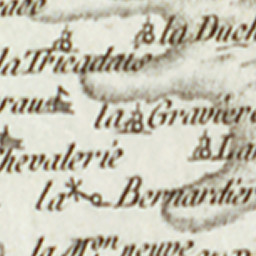 la Duch
la Tricadais
rau
la Gravière
hevalerie
la
la Bernardièr
la M.on neuve